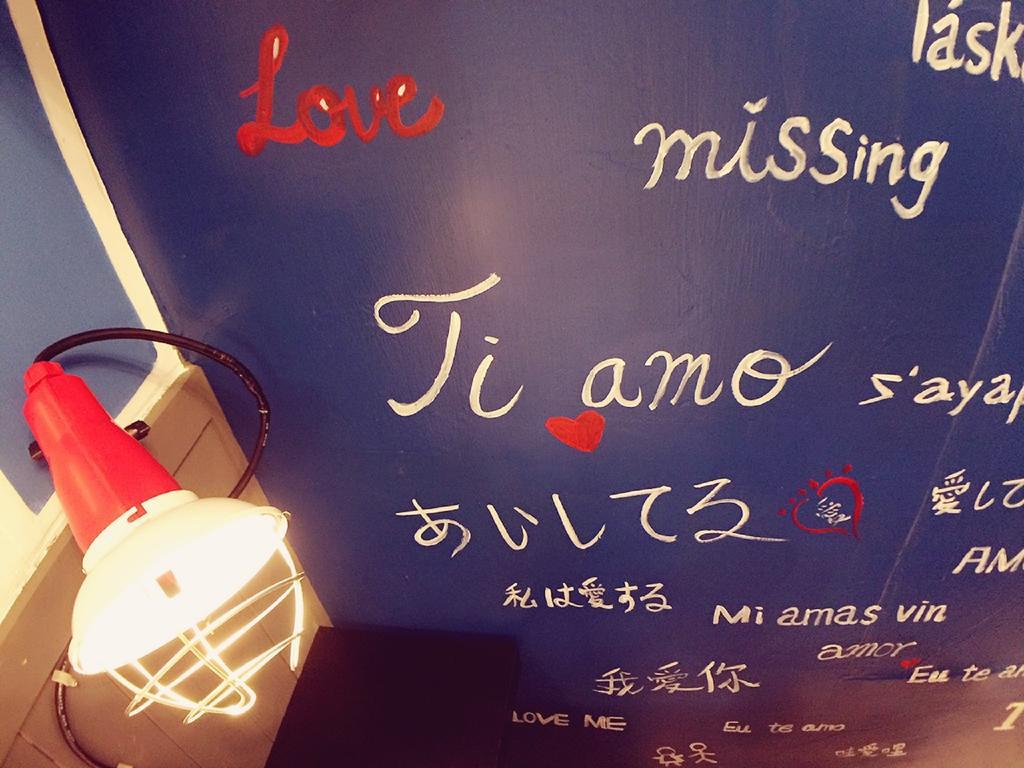 Love
lásk
missing
Ti amo
s'ayap
あいしてる
愛して
私は愛する
AM
Mi amas vin
amor
我愛你
Eu te am
LOVE ME
Eu te amo